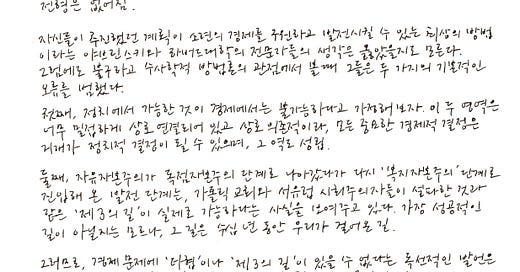 전형은 없어짐.
자신들이 추진했던 계획이 소련의 경제를 구원하고 발전시킬 수 있는 최상의 방법
이라는 야브린스키와 하버드대학의 전문가들의 생각은 옳았을지도 모른다.
그럼에도 불구하고 수사학적 방법론의 관점에서 볼 때 그들은 두 가지의 기본적인
오류를 범했다.
첫째, 정치에서 가능한 것이 경제에서는 불가능하다고 가정해보자. 이 두 영역은
너무 밀접하게 상호 연결되어 있고 상호 의존적이라, 모든 중요한 경제적 결정은
거개가 정치적 결정이 될 수 있으며, 그 역도 성립.
둘째, 자유자본주의가 독점자본주의 단계로 나아갔다가 다시 '복지자본주의' 단계로
진입해 온 발전 단계는, 가톨릭 교회와 서유럽 사회주의자들이 설파한 것과
같은 '제3의 길'이 실제로 가능하다는 사실을 보여주고 있다. 가장 성공적인
길이 아닐지는 모르나, 그 길은 수십 년 동안 우리가 걸어온 길.
그러므로, 경제 문제에 '타협'이나 '제3의 길'이 있을 수 없다는 독선적인 발언은